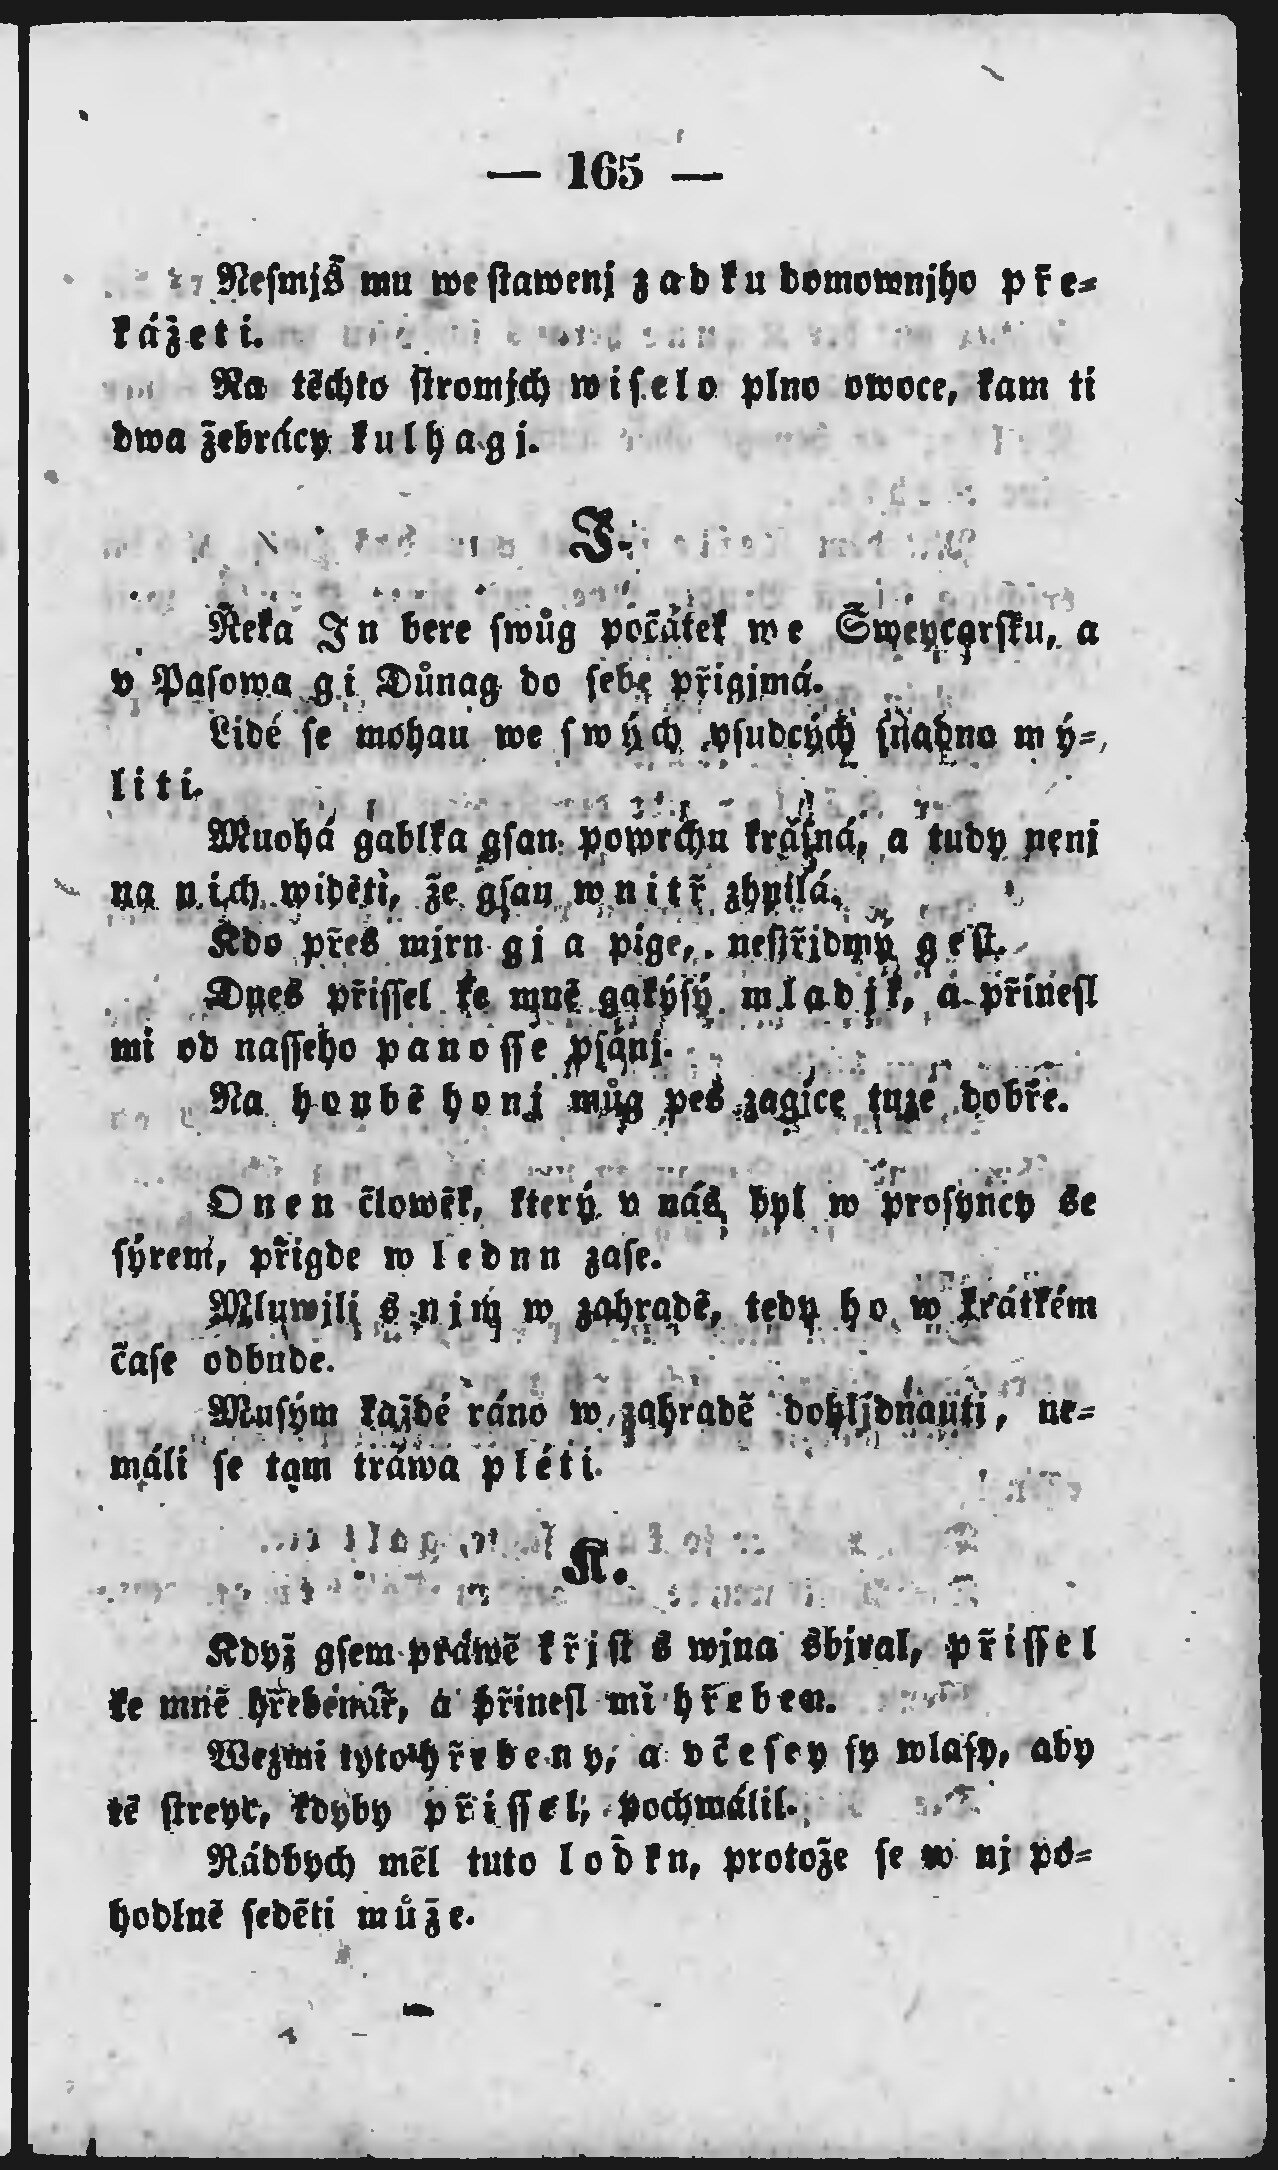 — 165 —
Nesmjš mu we stawenj zadku domownjho pře-
kážeti.
Na těchto stromjch wiselo plno owoce, kam ti
dwa žebrácy kulhagj.
J.
Řeka Jn bere swůg počátek we Šweycarsku, a
v Pasowa gi Důnag do sebe přigjmá.
Lidé se mohau we swých vsudcých snadno mý-
liti.
Mnohá gablka gsau powrchu krásná, a tudy nenj
na nich widěti, že gsau wnitř zhnilá.
Kdo přes mjrn gj a pige, nestřidmý gest.
Dnes přissel ke mně gakýsý mladjk, a přinesl
mi od nasseho panosse psánj.
Na honbě honj můg pes zagjce tuze dobře.
Onen člowěk, který v nás byl w prosyncy se
sýrem, přigde w lednn zase.
Mluwjli s njm w zahradě, tedy ho w krátkém
čase odbude.
Musým každé ráno w zahradě dohljdnauti, ne-
máli se tam tráwa pléti.
K.
Když gsem práwě křjst s wjna sbjral, přissel
ke mně hřebenář, a přinesl mi hřeben.
Wezmi tyto hřebeny, a včesey sy wlasy, aby
tě streyc, kdyby přissel, pochwálil.
Rádbych měl tuto loďkn, protože se w nj po-
hodlně seděti může.